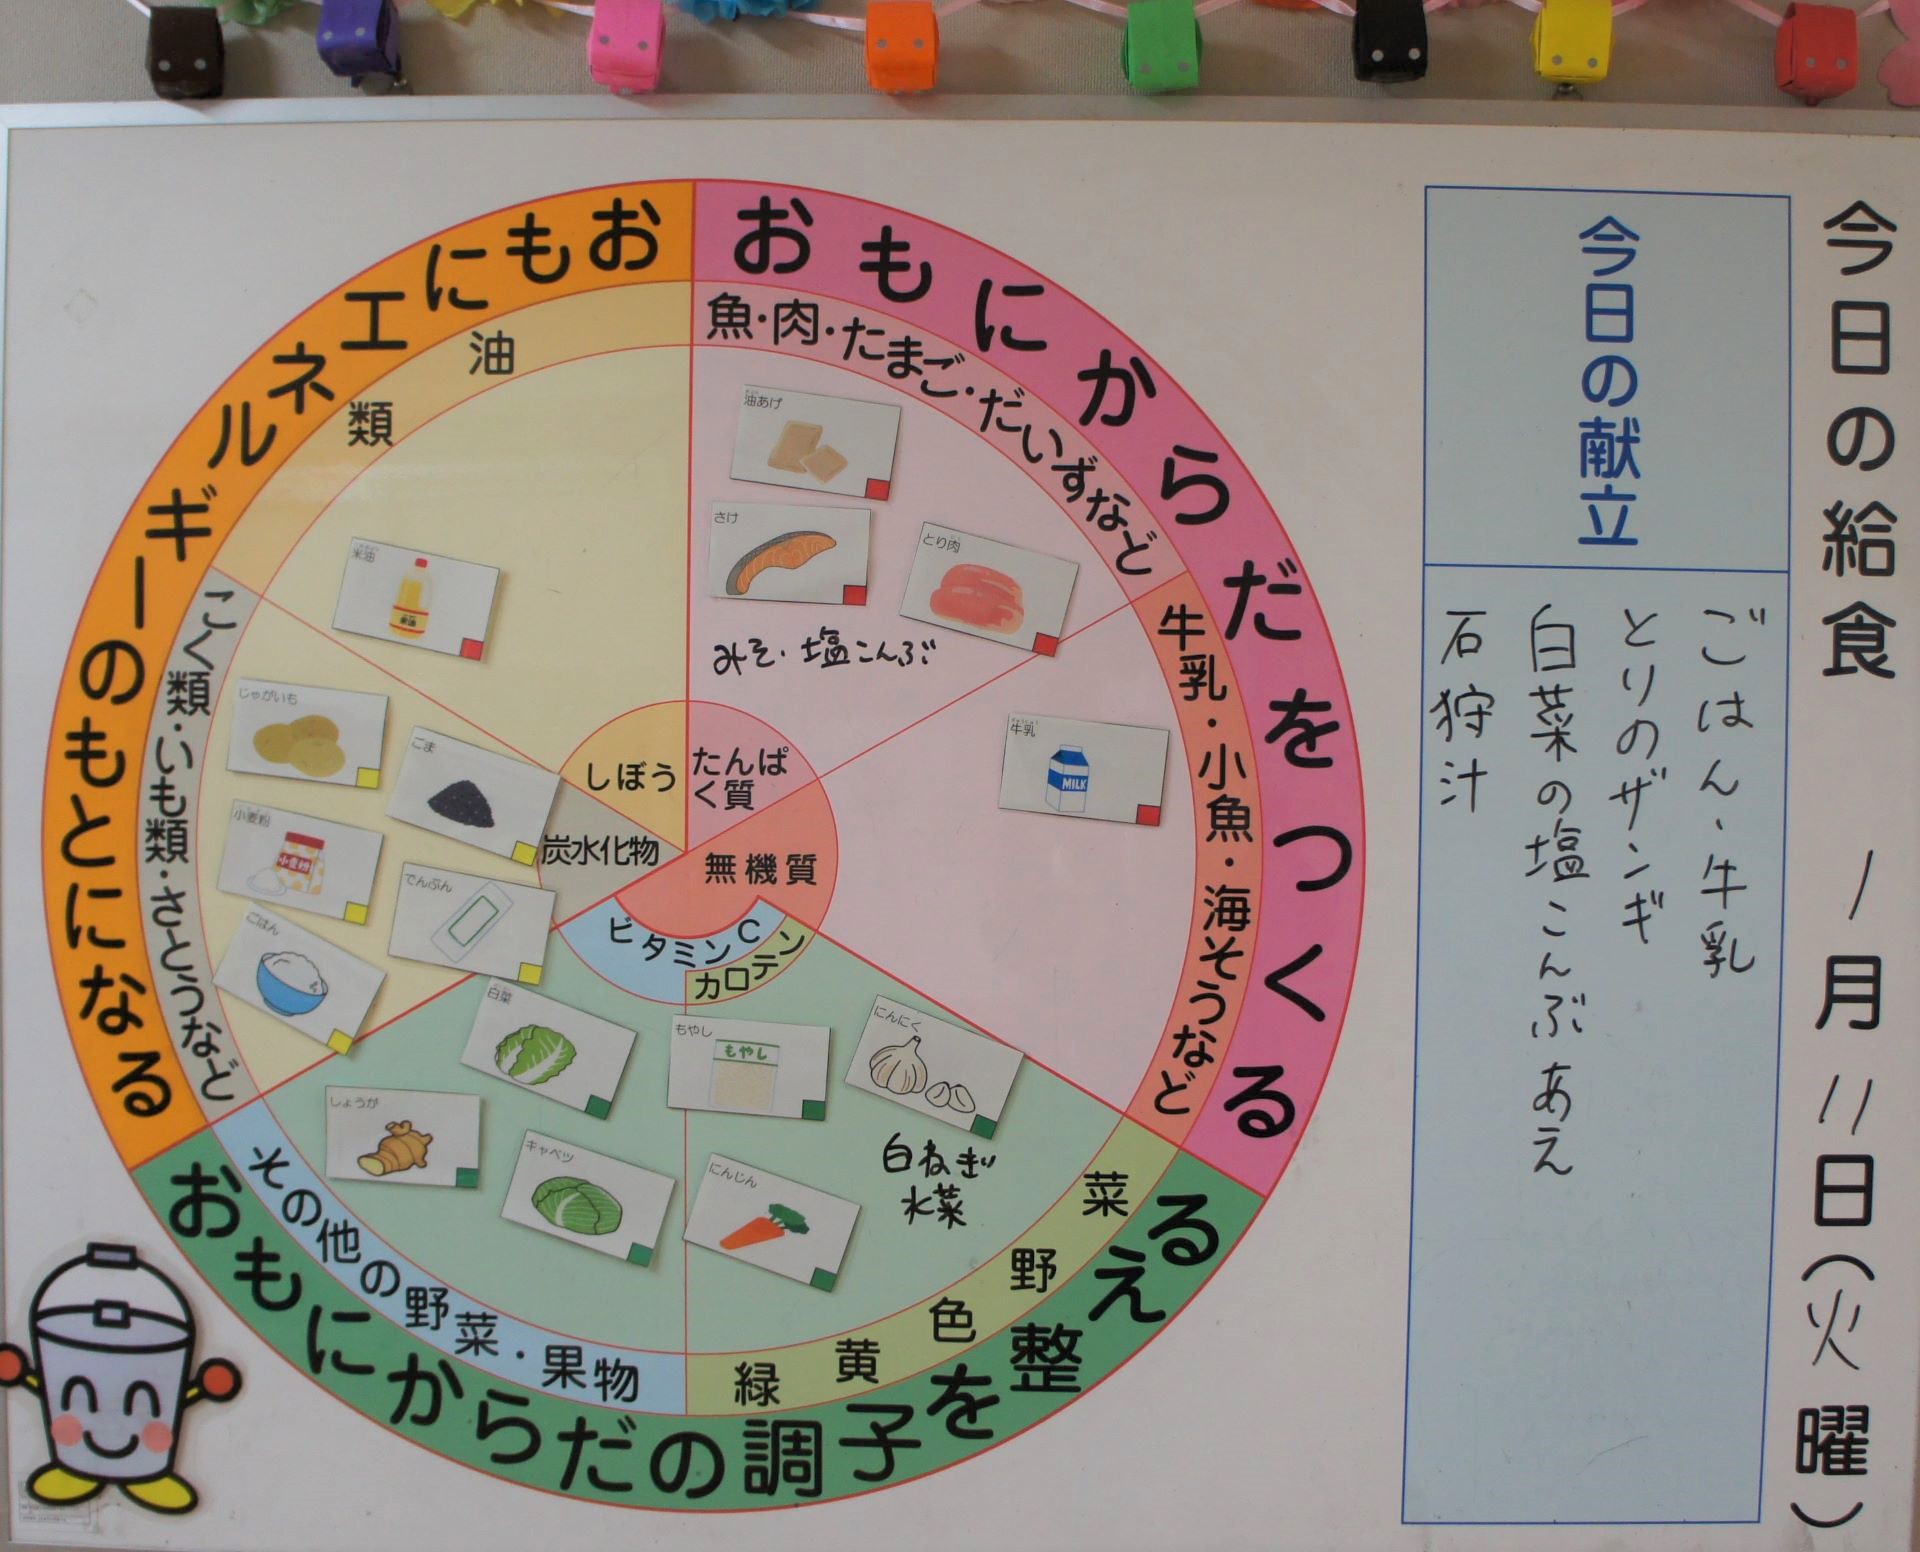 今日の給食 1月11日(火曜)
今日の献立
ごはん、牛乳
とりのザンギ
白菜の塩こんぶあえ
石狩汁
おもにからだをつくる
魚・肉・たまご・だいずなど
牛乳・小魚・海そうなど
油あげ
さけ
とり肉
みそ・塩こんぶ
牛乳
MILK
たんぱく質
無機質
おもにエネルギーのもとになる
油類
こく類・いも類・さとうなど
米油
米油
じゃがいも
ごま
小麦粉
小麦粉
でんぷん
ごはん
しぼう
炭水化物
おもにからだの調子を整える
その他の野菜・果物
緑黄色野菜
ビタミンC
カロテン
白菜
もやし
もやし
にんにく
しょうが
キャベツ
にんじん
白ねぎ
水菜